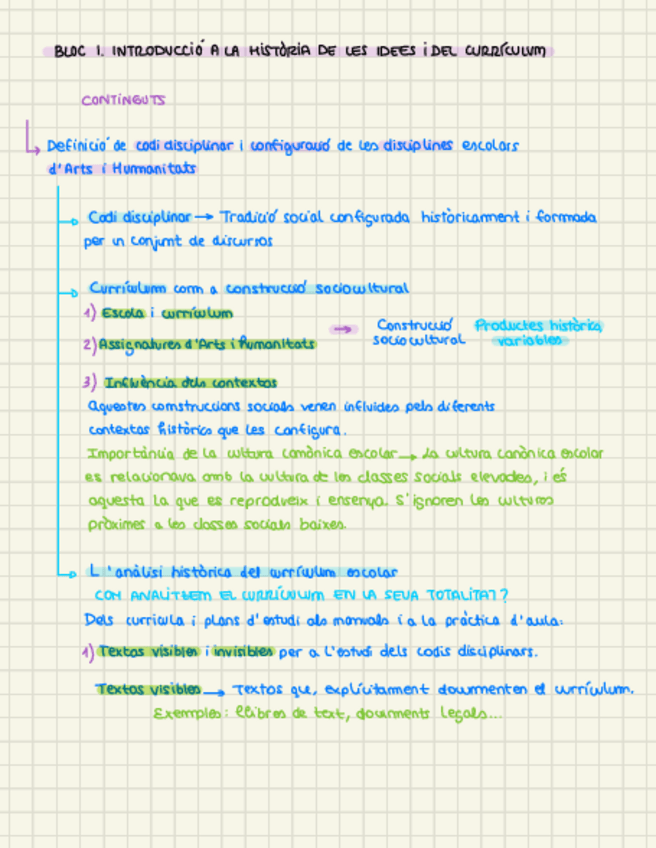 BLOC 1. INTRODUCCIÓ A LA HISTÒRIA DE LES IDEES i DEL CURRÍCULUM
CONTINGUTS
Definició de codi disciplinar i configuració de les disciplines escolars
d'Arts i Humanitats
Codi disciplinar → Tradició social configurada històricament i formada
per un conjunt de discursos
Currículum com a construcció sociocultural
1) Escola i currículum
2) Assignatures d'Arts i humanitats → Construcció sociocultural Productes històrics variables
3) Influència dels contextos
Aquestes construccions socials venen influides pels diferents
contextos històrics que les configura.
Importància de la cultura canònica escolar → La cultura canònica escolar
es relacionava amb la cultura de les classes socials elevades, i és
aquesta la que es reprodueix i ensenya. S'ignoren les cultures
pròximes a les classes socials baixes.
L'anàlisi històrica del currículum escolar
COM ANALITZEM EL CURRÍCULUM EN LA SEVA TOTALITAT?
Dels currícula i plans d'estudi als manuals i a la pràctica d'aula:
1) Textos visibles i invisibles per a l'estudi dels codis disciplinars.
Textos visibles → Textos que, explícitament documenten el currículum.
Exemples: llibres de text, documents legals...